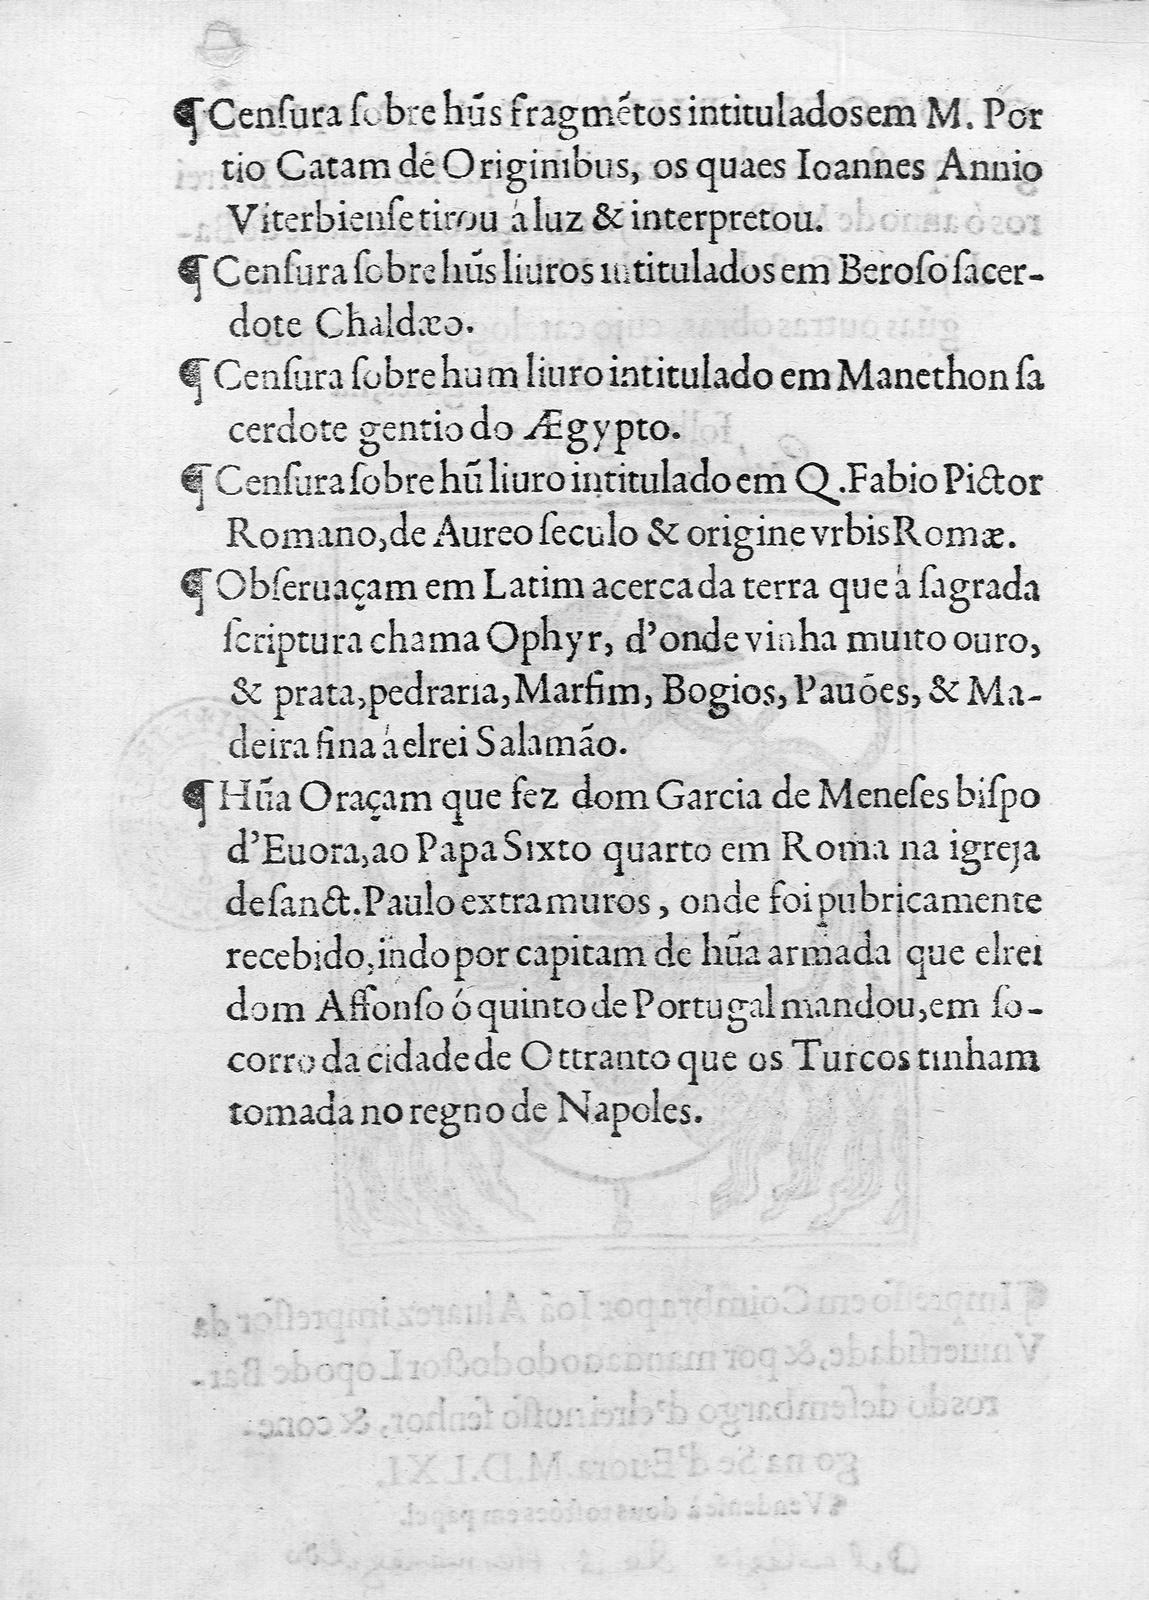 ¶ Cenſura ſobre hũs fragmẽtos intitulados em M. Por
tio Catam de Originibus, os quaes Ioannes Annio
Viterbienſe tirou á luz & interpretou.
¶ Cenſura ſobre hũs liuros intitulados em Beroſo ſacer-
dote Chaldæo.
¶ Cenſura ſobre hum liuro intitulado em Manethon ſa
cerdote gentio do Ægypto.
¶ Cenſura ſobre hũ liuro intitulado em Q. Fabio Pictor
Romano, de Aureo ſeculo & origine vrbis Romæ.
¶ Obſeruaçam em Latim acerca da terra que á ſagrada
ſcriptura chama Ophyr, d'onde vinha muito ouro,
& prata, pedraria, Marfim, Bogios, Pauões, & Ma-
deira fina á elrei Salamão.
¶ Hũa Oraçam que fez dom Garcia de Meneſes biſpo
d'Euora, ao Papa Sixto quarto em Roma na igreja
de ſanct. Paulo extra muros, onde foi pubricamente
recebido, indo por capitam de hũa armada que elrei
dom Affonſo ó quinto de Portugal mandou, em ſo-
corro da cidade de Ottranto que os Turcos tinham
tomada no regno de Napoles.
¶ Impreſſo em Coimbra por Ioã Aluarez impreſſor da
Vniuerſidade, & por mandado do doctor Lopo de Bar-
ros do deſembargo d'elrei noſſo ſenhor, & cone-
go na Se d'Euora. M.D.LXI.
¶ Vendenſe á dous toſtões em papel.